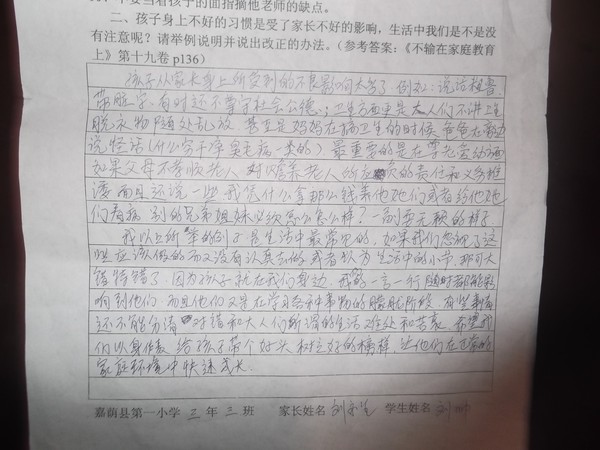 不要当着孩子的面指摘他老师的缺点。
二、孩子身上不好的习惯是受了家长不好的影响，生活中我们是不是没
有注意呢？请举例说明并说出改正的办法。（参考答案：《不输在家庭教育
上》第十九卷 p136）
孩子从家长身上所受到的不良影响太多了. 例如：说话粗鲁
带脏字，有时还不遵守社会公德；卫生方面更是大人们不讲卫生
脱衣物随处乱放 甚至是妈妈在搞卫生的时候 爸爸在旁边
说怪话（什么穷干净 臭毛病一类的） 最重要的是在尊老爱幼方面
如果父母不孝顺老人 对赡养老人所应的责任和义务推
而且还说一些 我凭什么拿那么钱养他她们或者给他她
们看病 别的兄弟姐妹必须怎么怎么样？一副要无赖的样子
我以上所举的例子是生活中最常见的，如果我们忽视了这
些应该做的而又没有认真去做 或者认为生活中的小节 那可大
错特错了. 因为孩子就在我们身边. 我的一言一行随时都能影
响到他们. 而且他们又是在学习各种事物的朦胧阶段 有些事情
还不能分清对错和大人们所谓的生活难处和苦衷. 希望我
们以身作责 给孩子带个好头 树立好的榜样. 让他们在正常的
家庭环境中快速成长.
嘉荫县第一小学 三 年 三 班 家长姓名 学生姓名 刘帅